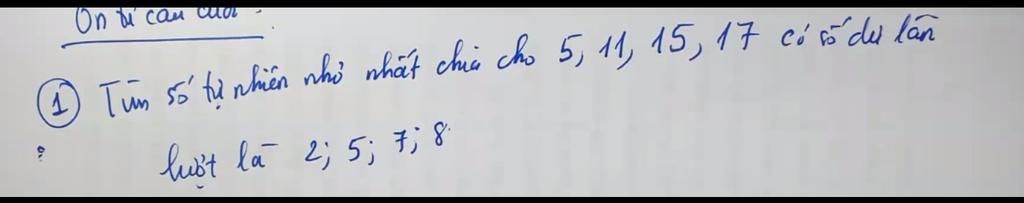 Ôn từ câu cuối.
① Tìm số tự nhiên nhỏ nhất chia cho 5, 11, 15, 17 có số dư lần
lượt là 2; 5; 7; 8